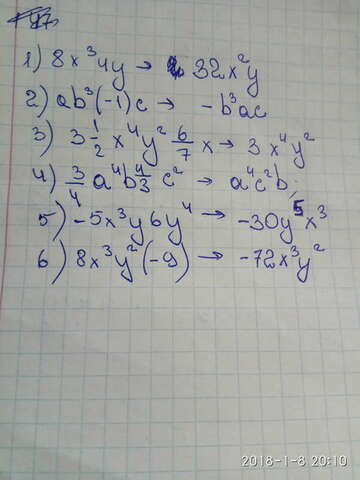 1) 8x³4y → 32x²y
2) ab³(-1)c → -b³ac
3) 3 1/2 x⁴y² 6/7 x → 3x⁴y²
4) 3/4 a⁴b 4/3 c² → a⁴c²b;
5) -5x³y6y⁴ → -30y⁵x³
6) 8x³y²(-9) → -72x³y²
2018-1-8 20:10